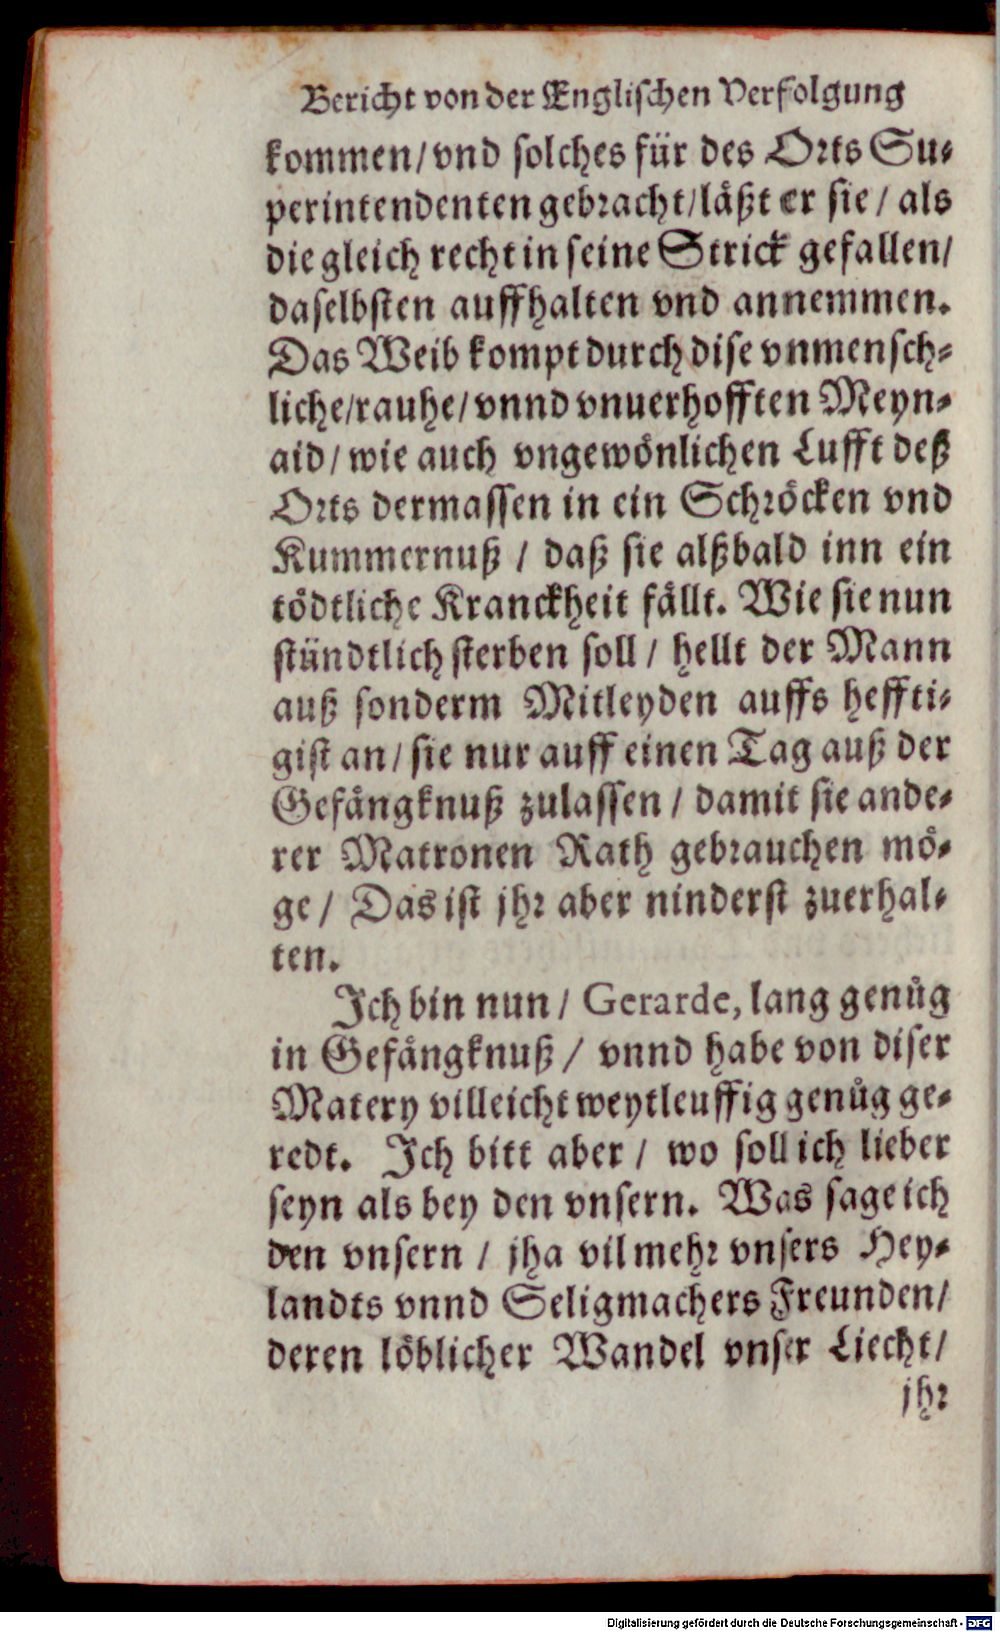 Bericht von der Englischen Verfolgung
kommen/vnd solches für des Orts Su-
perintendenten gebracht/läßt er sie/ als
die gleich recht in seine Strick gefallen/
daselbsten auffhalten vnd annemmen.
Das Weib kompt durch dise vnmensch-
liche/rauhe/vnnd vnuerhofften Meyn-
aid/ wie auch vngewönlichen Lufft deß
Orts dermassen in ein Schröcken vnd
Kummernuß / daß sie alßbald inn ein
tödtliche Kranckheit fällt. Wie sie nun
stündtlich sterben soll/ hellt der Mann
auß sonderm Mitleyden auffs heffti-
gist an/ sie nur auff einen Tag auß der
Gefängknuß zulassen/ damit sie ande-
rer Matronen Rath gebrauchen mö-
ge/ Das ist jhr aber ninderst zuerhal-
ten.
Ich bin nun/ Gerarde, lang genůg
in Gefängknuß/ vnnd habe von diser
Matery villeicht weytleuffig genůg ge-
redt. Ich bitt aber/ wo soll ich lieber
seyn als bey den vnsern. Was sage ich
den vnsern/ jha vil mehr vnsers Hey-
landts vnnd Seligmachers Freunden/
deren löblicher Wandel vnser Liecht/
jhr
Digitalisierung gefördert durch die Deutsche Forschungsgemeinschaft - DFG